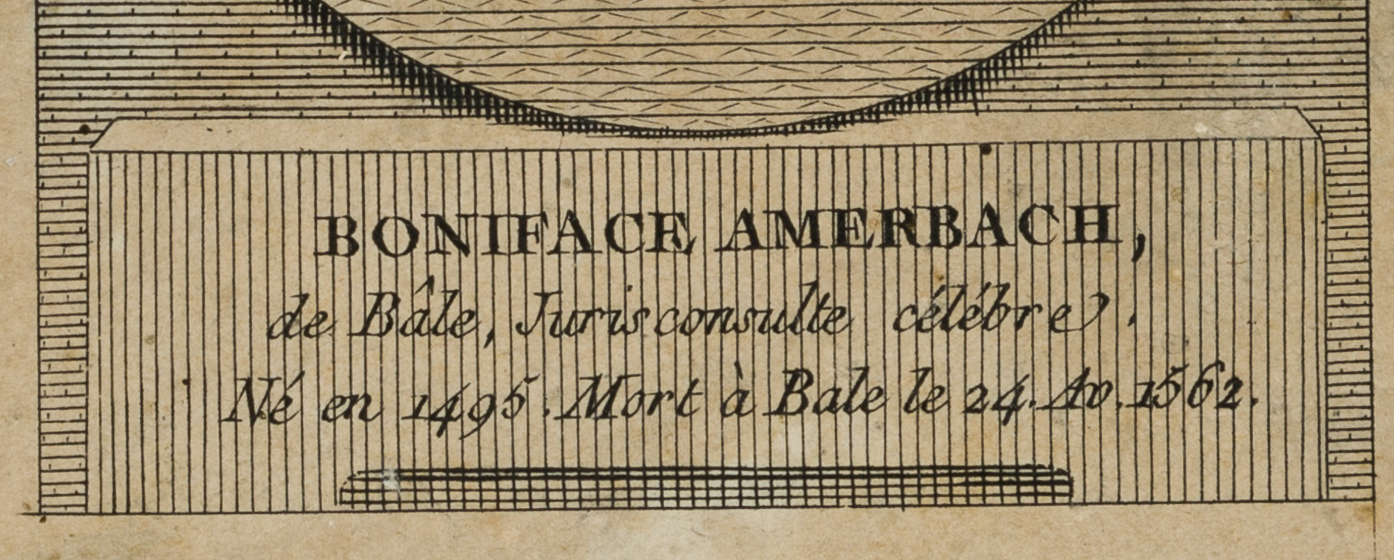 BONIFACE AMERBACH,
de Bâle, Jurisconsulte célébre.
Né en 1495. Mort à Bale le 24. Av. 1562.